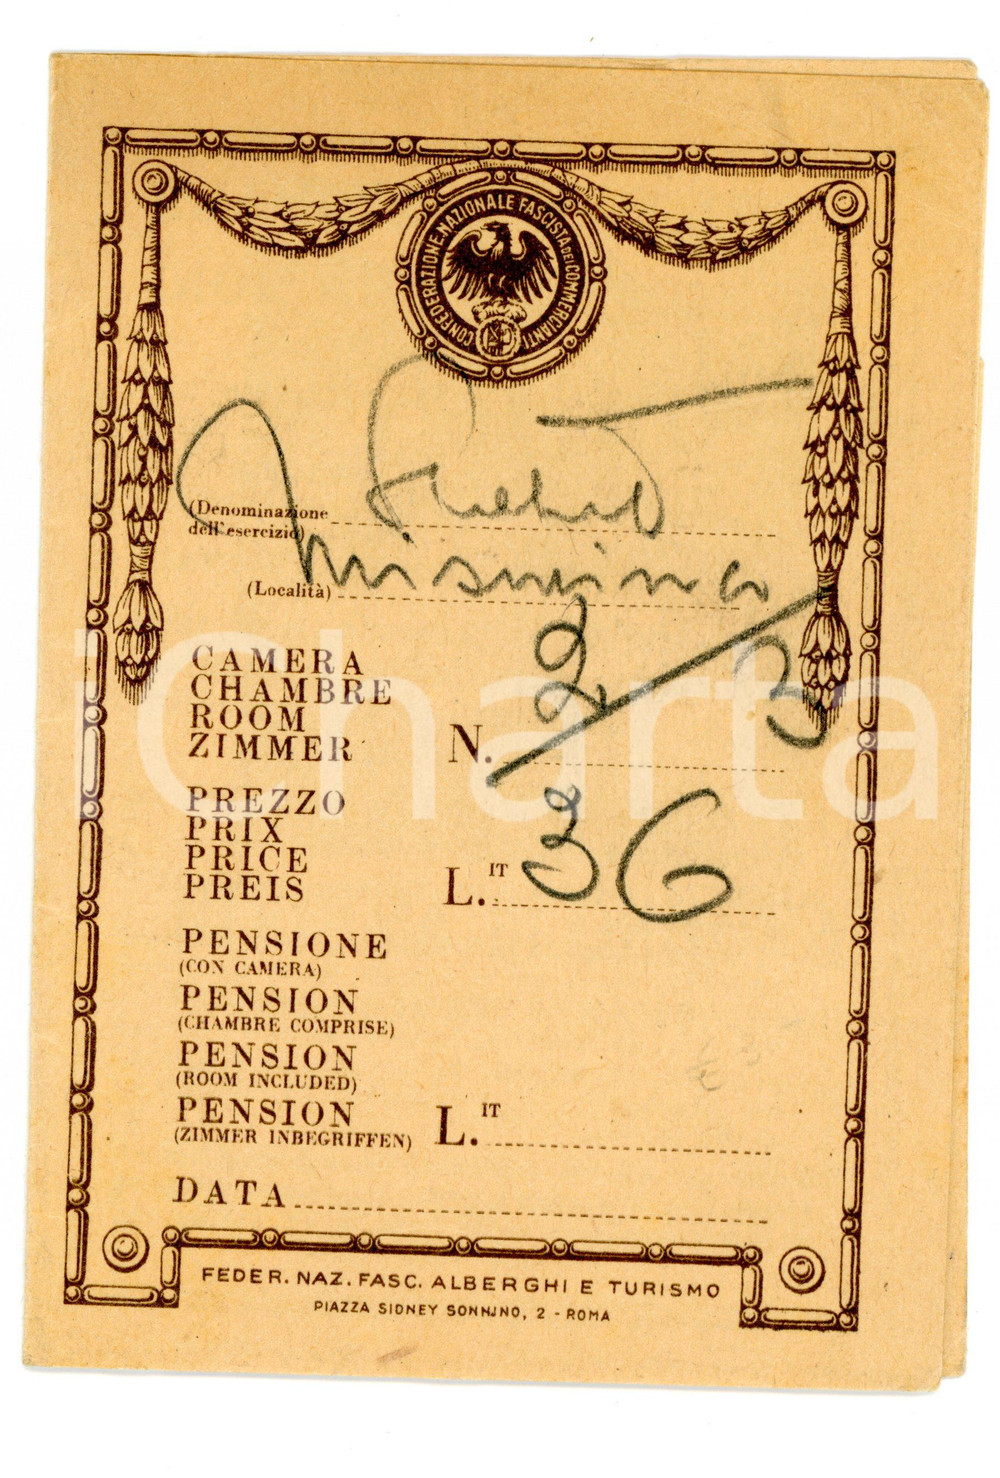 CONFEDERAZIONE NAZIONALE FASCISTA DEI COMMERCIANTI
(Denominazione
dell'esercizio)
(Località) Misurina
CAMERA
CHAMBRE
ROOM
ZIMMER N. 2/3
PREZZO
PRIX
PRICE
PREIS L.IT 36
PENSIONE
(CON CAMERA)
PENSION
(CHAMBRE COMPRISE)
PENSION
(ROOM INCLUDED)
PENSION
(ZIMMER INBEGRIFFEN) L.IT
DATA
FEDER. NAZ. FASC. ALBERGHI E TURISMO
PIAZZA SIDNEY SONNINO, 2 - ROMA
iCharta